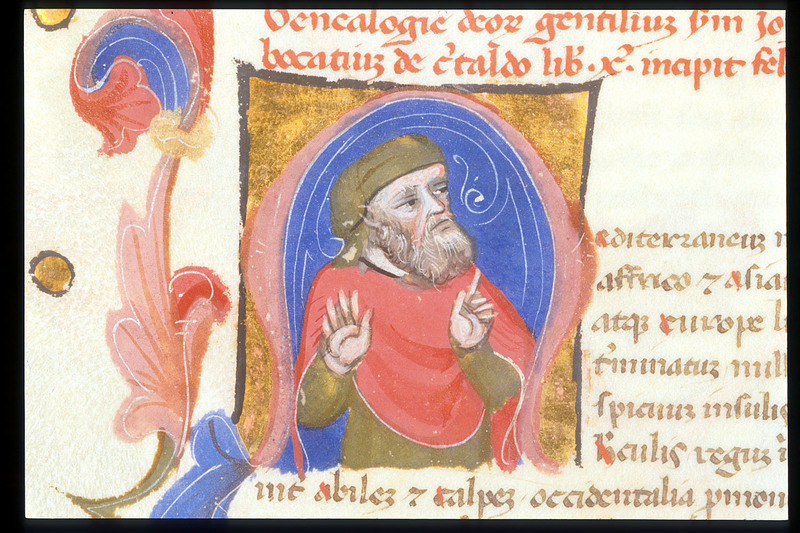 Genealogie deor gentiliuz ẜm Jo
bocatiuz de c̄taldo lib. x. incipit fel
editerraneuz
affrico ⁊ asia
atqȝ europe
t̄minatuz null
spicuuz insulis
seculis reguz
abilez ⁊ calpez occidentalia